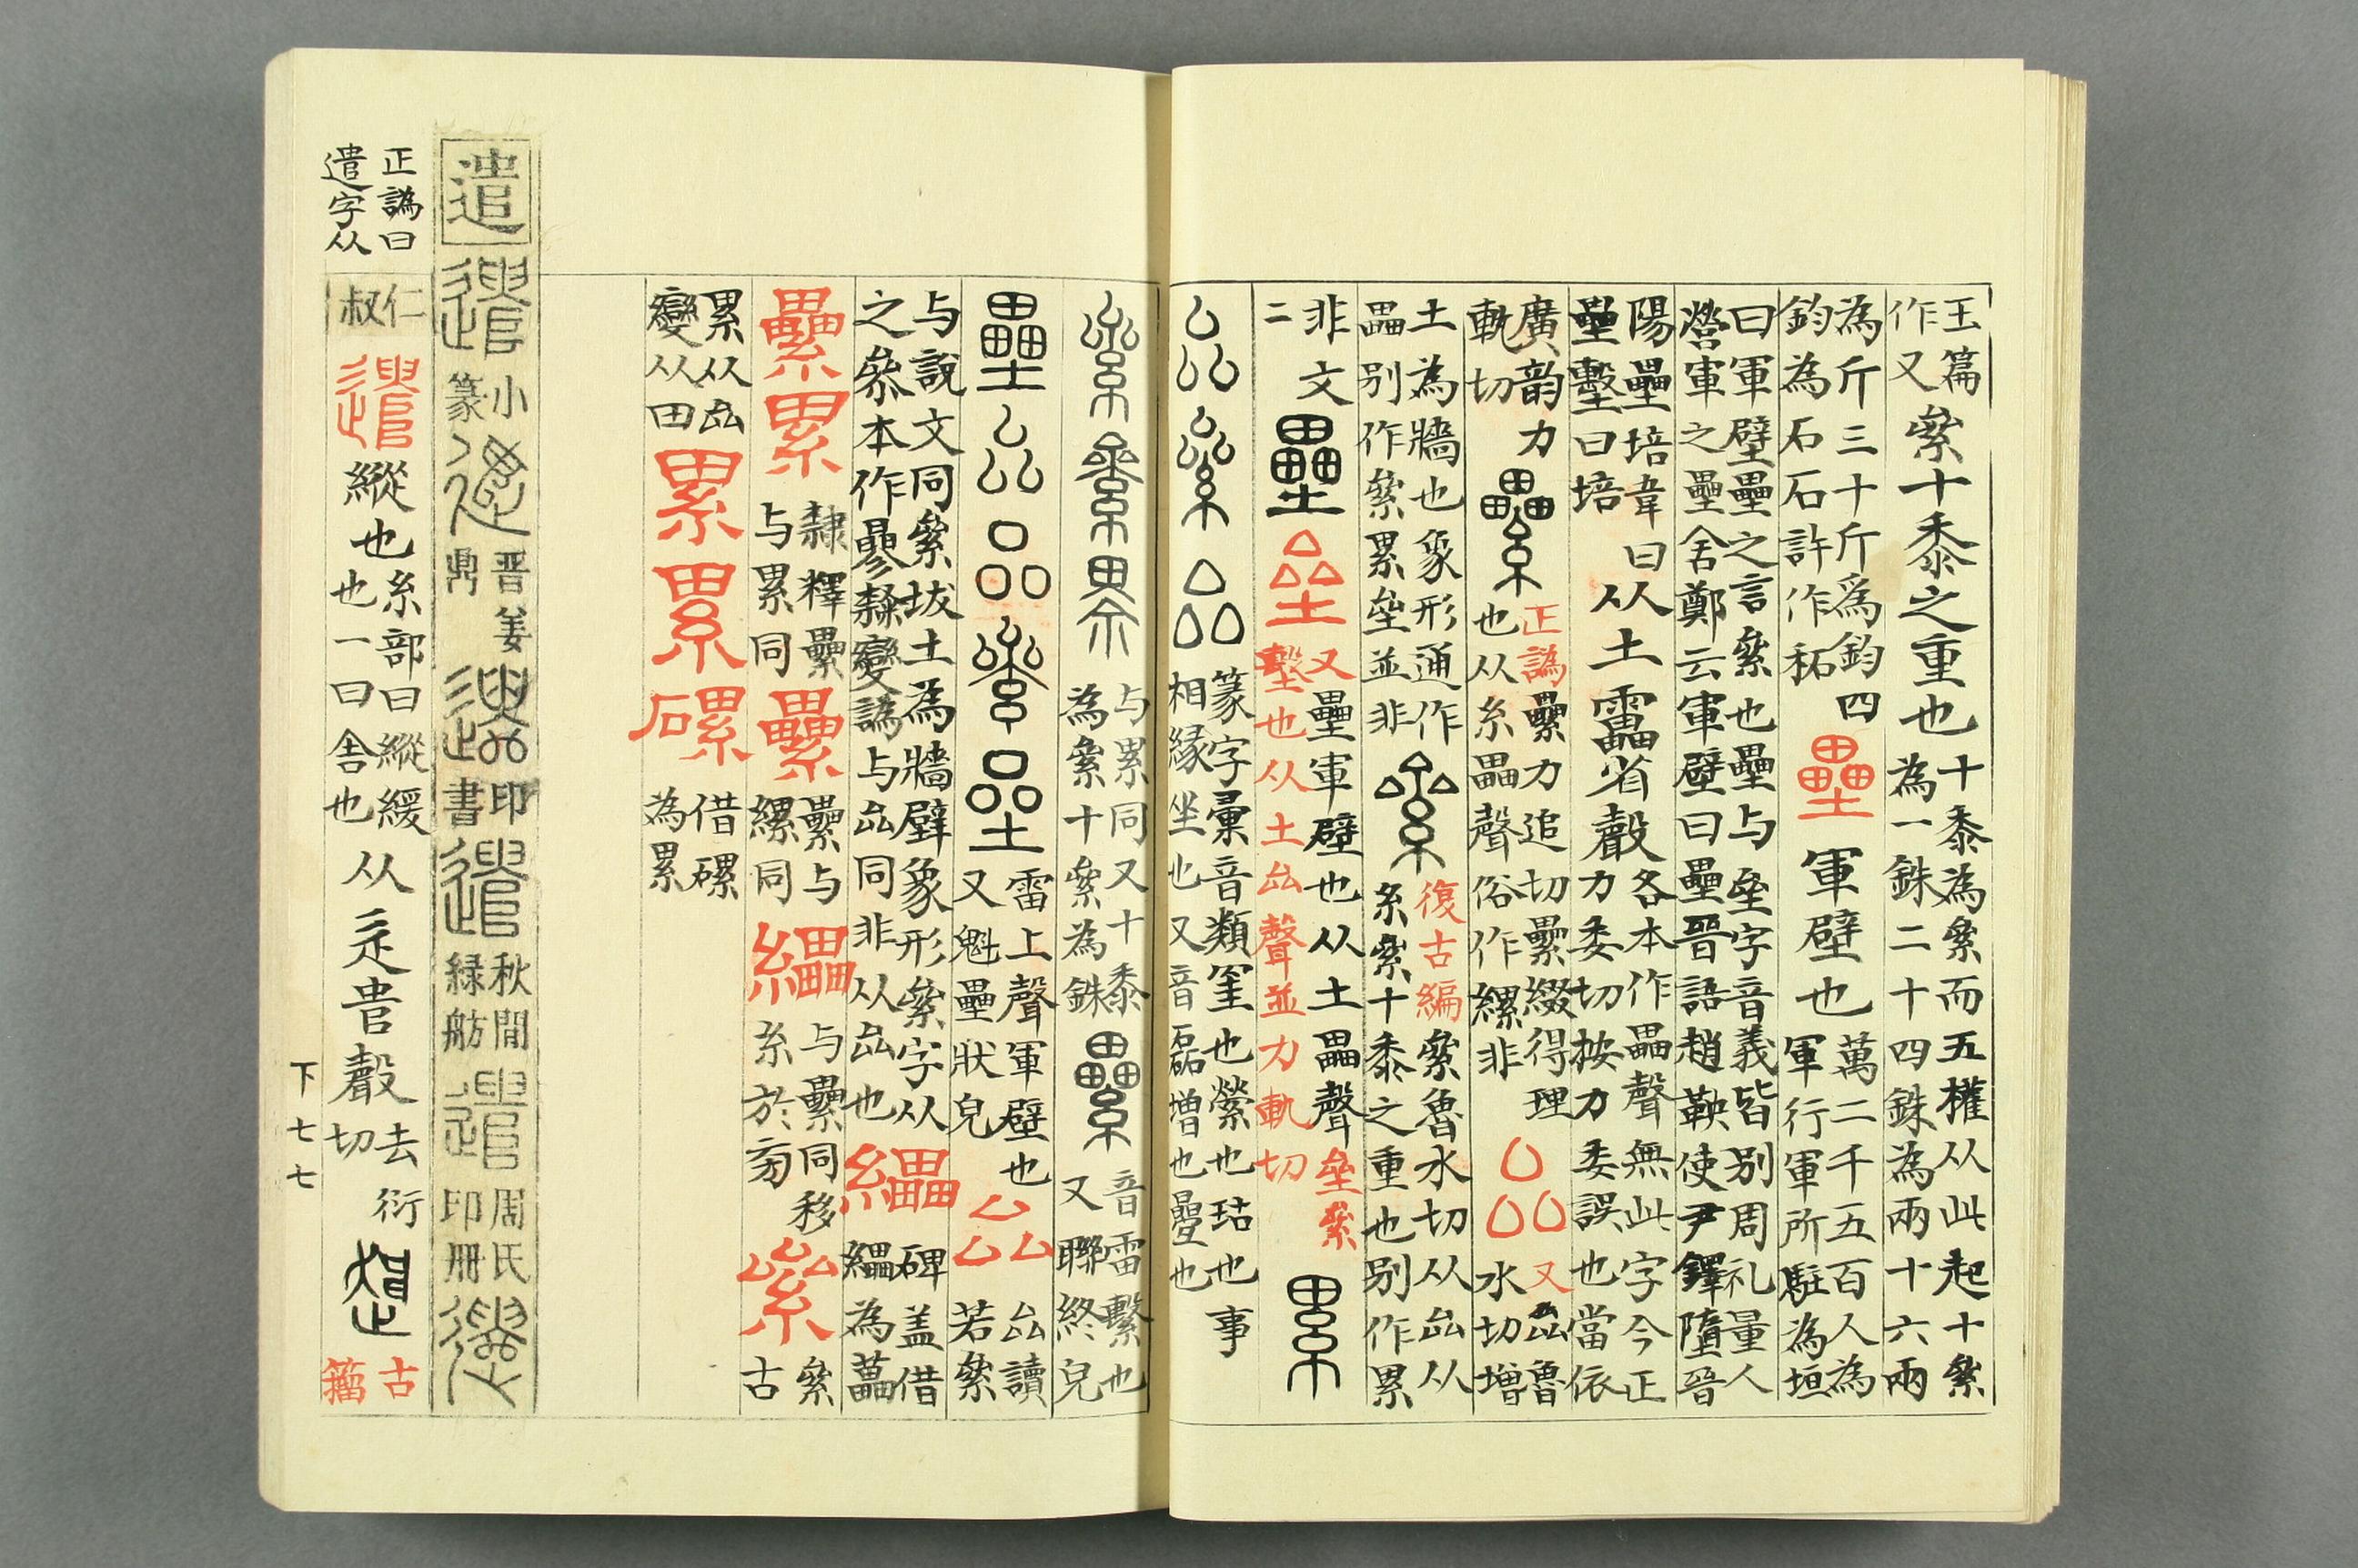 玉篇作又絫十黍之重也十黍為絫而五權从此起十絫為一銖二十四銖為兩十六兩
為斤三十斤爲鈞四鈞為石石許作䄷壘軍壁也萬二千五百人為軍行軍所駐為垣
曰軍壁壘之言絫也壘与垒字音義皆別周礼量人營軍之壘舍鄭云軍壁曰壘晉語趙鞅使尹鐸墮晉
陽壘培韋曰壘墼曰培从土畾省聲各本作畾聲無此字今正力委切按力委誤也當依
廣韵力軌切纍正譌纍力追切纍綴得理也从糸畾聲俗作縲非又厽魯水切增
土為牆也象形通作畾別作絫累垒並非絫復古編絫魯水切从厽从糸絫十黍之重也別作累
非文二壘垒又壘軍壁也从土畾聲垒絫墼也从土厽聲並力軌切累
厽絫厽篆字彙音類
絫絫累与累同又十黍為絫十絫為銖纍音雷繫也又聯終皃
壘厽品絫垒雷上聲軍壁也又魁壘狀皃厽厽讀若絫
与說文同絫坺土為牆壁象形絫字从之参本作曑隸變譌与厽同非从厽也纝碑盖借纝為虆
纍累隸釋纍与累同纍纍与縲同纝与纍同移糸於旁絫絫古
累从厽變从田累累磥借磥為累
遣
小篆
晋姜鼎
印書
秋閒緑舫
周氏印冊
正譌曰遣字从
仁叔遣縱也糸部曰縱緩也一曰舍也从辵𠳋聲去衍切古籀
下七七